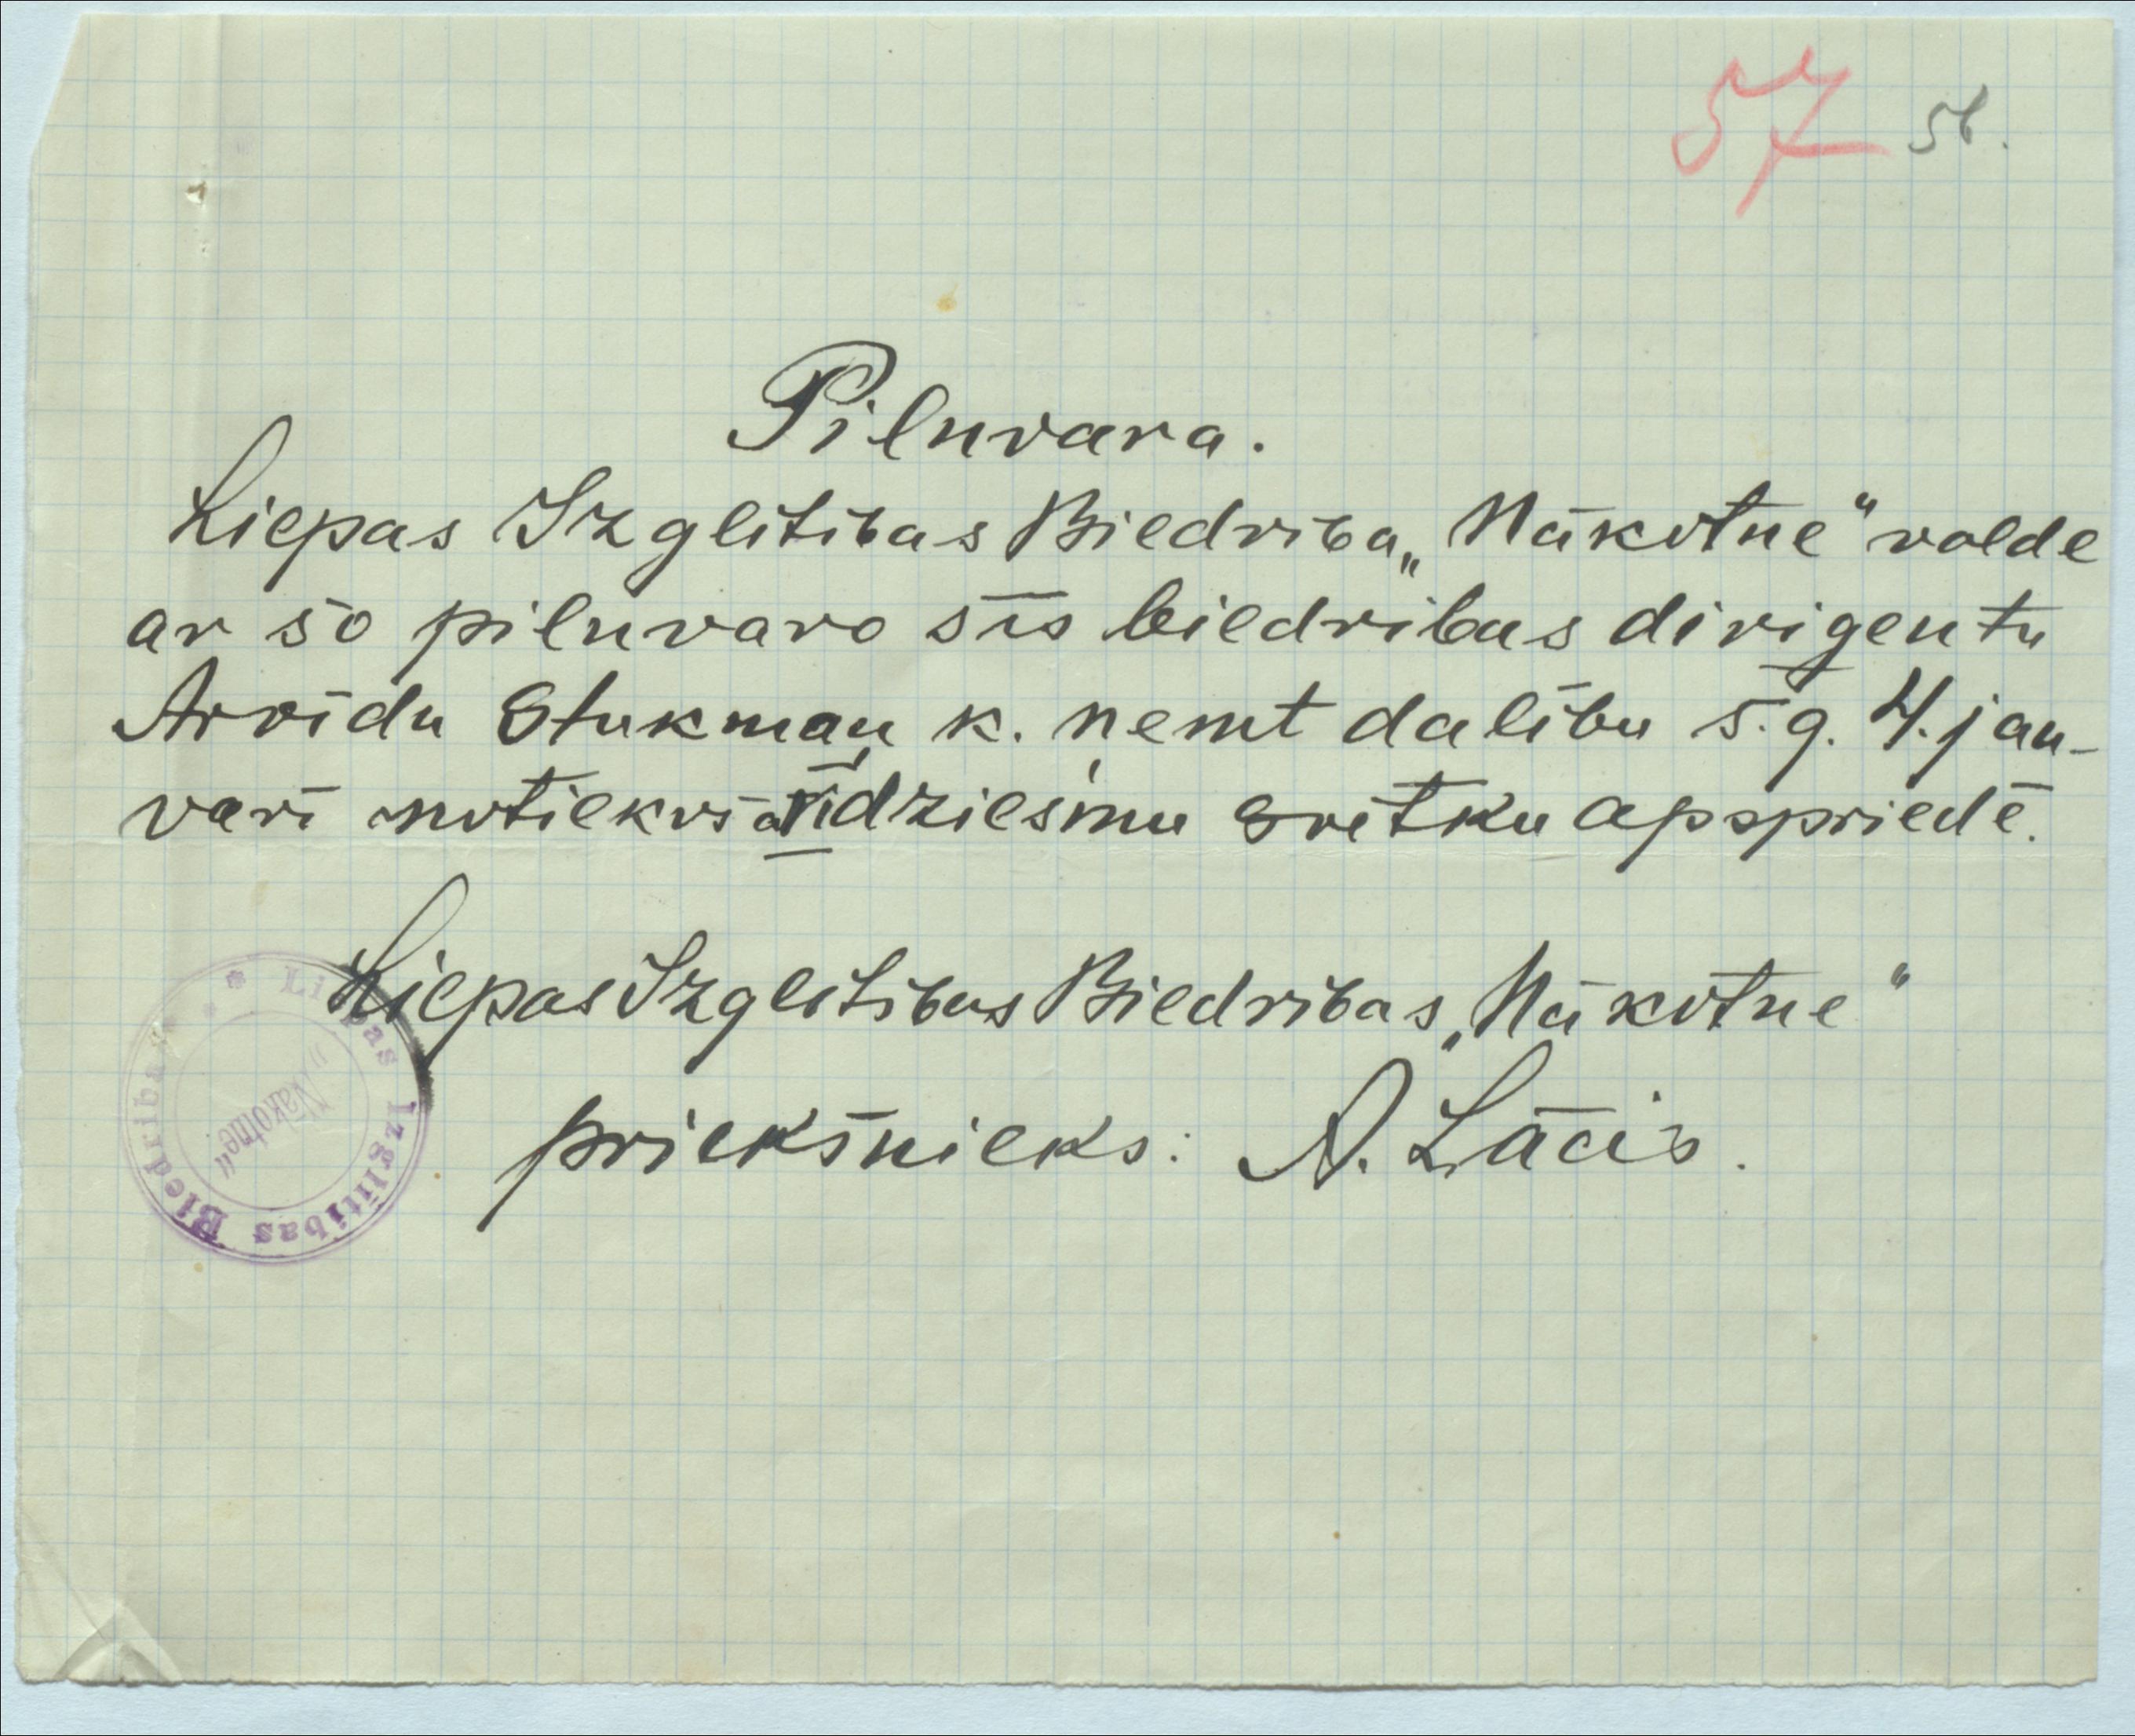 57 56.
Pilnvara.
Liepas Izglitibas Biedriba „Nākotne" valde
ar šo pilnvaro šīs biedribas dirigentu
Arvīdu Stukman k. ņemt dalību š.g. 4. jan-
varī notiekošā VI dziesmu svētku apspriedē.
Liepas Izglitibas Biedribas „Nākotne"
priekšnieks: A. Lācis.
* Liepas Izglītibas Biedribas *
„Nakotne"